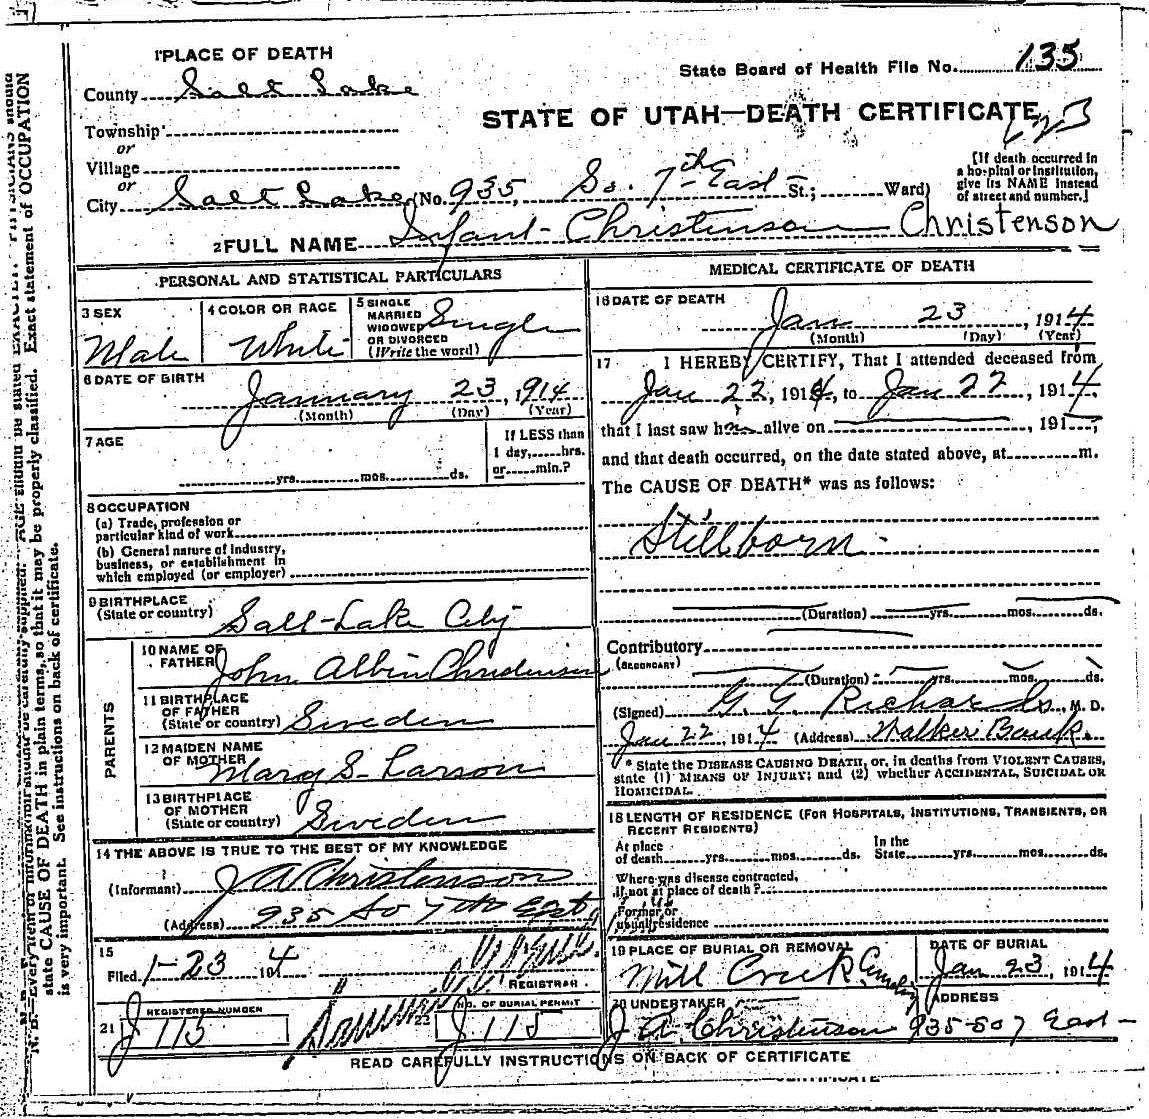 1 PLACE OF DEATH
State Board of Health File No. 135
County Salt Lake
STATE OF UTAH—DEATH CERTIFICATE
Township
or
Village
or
City Salt Lake (No. 935, So. 7th East St.; Ward)
[If death occurred in
a hospital or institution,
give its NAME instead
of street and number.]
2 FULL NAME Infant Christenson Christenson
PERSONAL AND STATISTICAL PARTICULARS
3 SEX
Male
4 COLOR OR RACE
White
5 SINGLE
MARRIED
WIDOWED
OR DIVORCED
(Write the word)
Single
6 DATE OF BIRTH
January 23, 1914
(Month) (Day) (Year)
7 AGE
yrs. mos. ds.
If LESS than
1 day, hrs.
or min.?
8 OCCUPATION
(a) Trade, profession or
particular kind of work
(b) General nature of industry,
business, or establishment in
which employed (or employer)
9 BIRTHPLACE
(State or country) Salt Lake City
PARENTS
10 NAME OF
FATHER John Albin Christenson
11 BIRTHPLACE
OF FATHER
(State or country) Sweden
12 MAIDEN NAME
OF MOTHER Mary S. Larson
13 BIRTHPLACE
OF MOTHER
(State or country) Sweden
14 THE ABOVE IS TRUE TO THE BEST OF MY KNOWLEDGE
(Informant) J A Christenson
(Address) 935 So 7th East
15
Filed 1-23 1914
REGISTRAR
21 REGISTERED NUMBER
J 115
22 NO. OF BURIAL PERMIT
J 115
MEDICAL CERTIFICATE OF DEATH
16 DATE OF DEATH
Jan 23, 1914
(Month) (Day) (Year)
17 I HEREBY CERTIFY, That I attended deceased from
Jan 22, 1914, to Jan 22, 1914,
that I last saw him alive on , 191 ,
and that death occurred, on the date stated above, at m.
The CAUSE OF DEATH* was as follows:
Stillborn
(Duration) yrs. mos. ds.
Contributory
(SECONDARY)
(Duration) yrs. mos. ds.
(Signed) G. G. Richards, M. D.
Jan 22, 1914 (Address) Walker Bank.
* State the DISEASE CAUSING DEATH, or, in deaths from VIOLENT CAUSES,
state (1) MEANS OF INJURY; and (2) whether ACCIDENTAL, SUICIDAL OR
HOMICIDAL.
18 LENGTH OF RESIDENCE (FOR HOSPITALS, INSTITUTIONS, TRANSIENTS, OR
RECENT RESIDENTS)
At place
of death yrs. mos. ds.
In the
State yrs. mos. ds.
Where was disease contracted,
if not at place of death?
Former or
usual residence
19 PLACE OF BURIAL OR REMOVAL
Mill Creek Cemetery
DATE OF BURIAL
Jan 23, 1914
20 UNDERTAKER
J A Christenson
ADDRESS
935-So 7 East
READ CAREFULLY INSTRUCTIONS ON BACK OF CERTIFICATE
CERTIFICATE
state CAUSE OF DEATH in plain terms, so that it may be properly classified. Exact statement of OCCUPATION
is very important. See instructions on back of certificate.